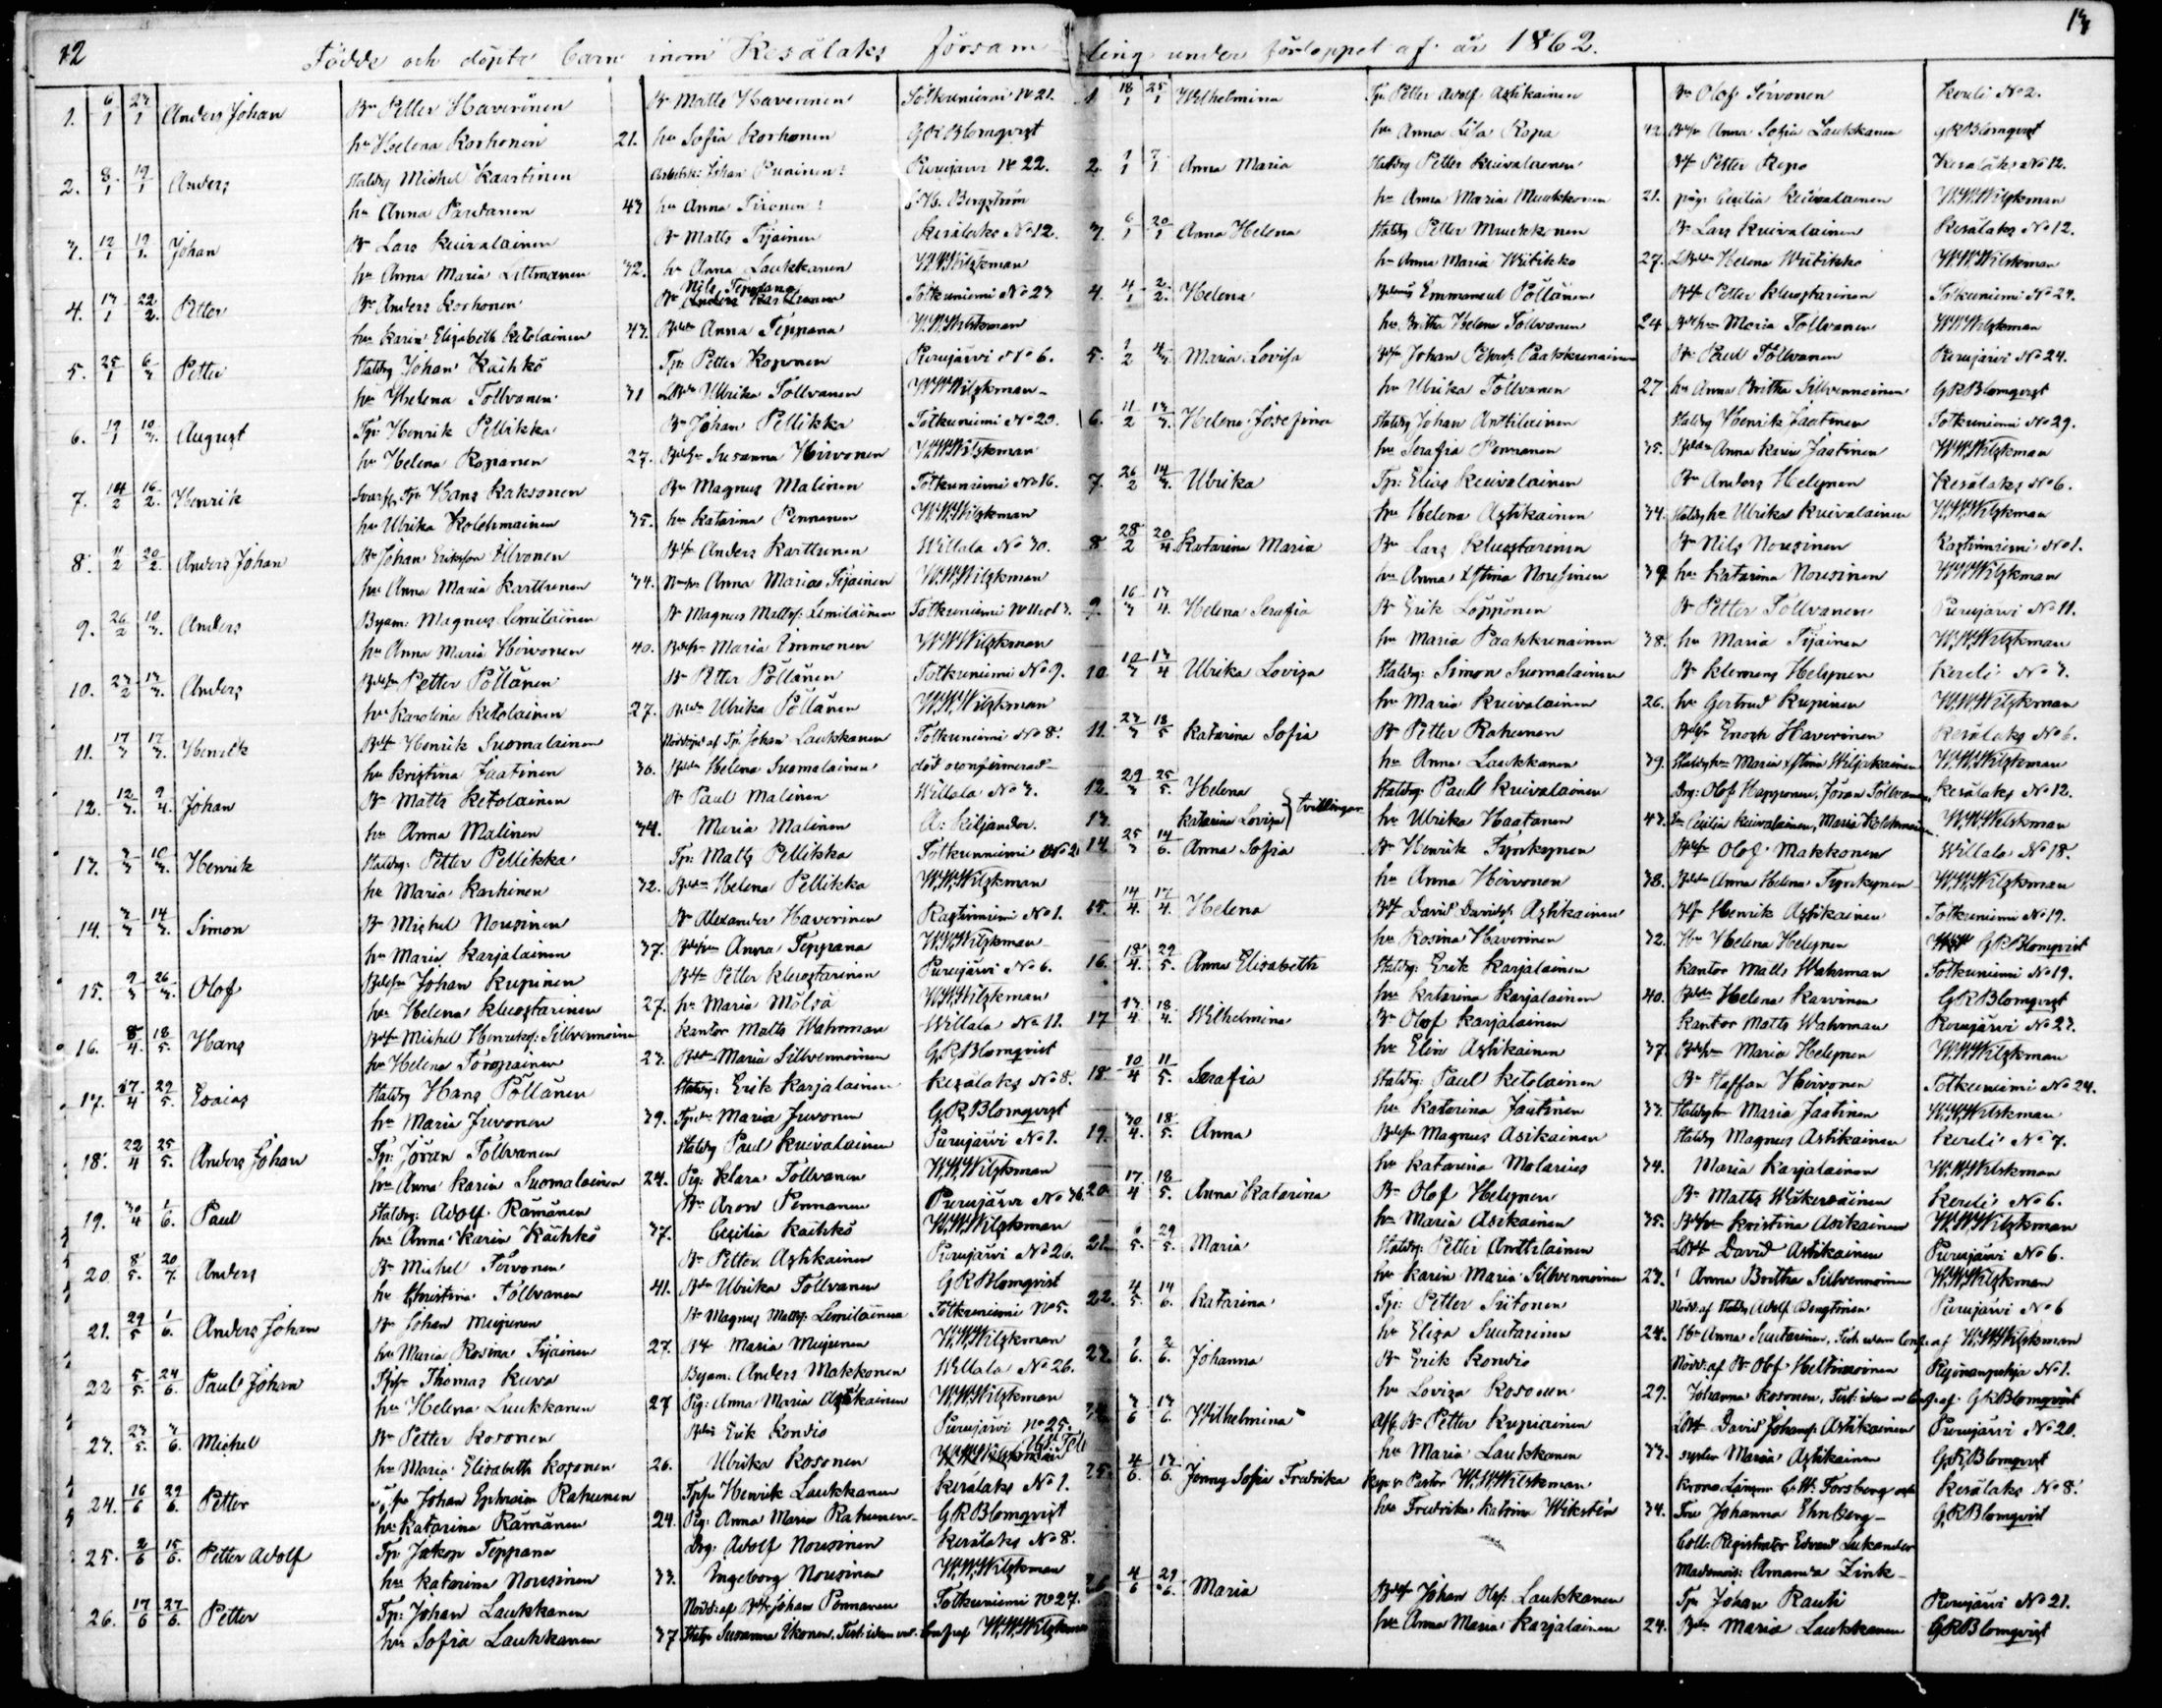 12
Födde och döpte barn inom Kesälaks församling under förloppet af år 1862.
13
1. 6/1 27/1 Anders Johan Bn Petter Haverinen Bn Matts Haverinen Totkuniemi № 21.
hu Helena Korhonen 21. hu Sofia Korhonen GR Blomqvist
2. 8/1 19/1 Anders Staldrg Michel Kaartinen Johan Purujärvi № 22.
hu Anna Pardanen 43 hu Anna Tironen Bergström
3. 12/1 19/1. Johan Bn Lars Kuivalainen Bn Matts Tijainen Kesälaks № 12.
hu Anna Maria Littmanen 32. hu Anna Laukkanen W.W. Wilskman
4. 13/1 22/2. Petter Bn Anders Korhonen Bn Nils Teppana Totkuniemi № 23
hu Karin Elisabeth Ketolainen 43. Anna Teppana W.W. Wilskman
5. 25/1 6/3 Petter Staldrg Johan Käihkö Tpr Petter Koponen Purujärvi № 6.
hu Helena Tollvanen 31 Ulrika Tollvanen W.W. Wilskman
6. 19/1 10/3. August Tpr Henrik Pellikka Bn Johan Pellikka Totkuniemi № 29.
hu Helena Ropanen 27. Susanna Hirvonen W.W. Wilskman
7. 14/2 16/2. Henrik Tpr Hans Kaksonen Bn Magnus Malinen Totkuniemi № 16.
hu Ulrika Kolehmainen 35. hu Katarina Pennanen W.W. Wilskman
8. 11/2 20/2. Anders Johan Bn Johan Eriksson Anders Karttunen Willala № 30.
hu Anna Maria Karttunen 34. Anna Maria Tijainen W.W. Wilskman
9. 26/2 10/3. Anders Byam: Magnus Lemiläinen Bn Magnus Mattss: Lemiläinen Totkuniemi
hu Anna Maria Hirvonen 40. Maria Immonen W.W. Wilskman
10. 23/2 13/3. Anders Petter Pöllänen Bn Petter Pöllänen Totkuniemi № 9.
hu Karolina Ketolainen 27. Ulrika Pöllänen W.W. Wilskman
11. 17/3 17/3. Henrik Henrik Suomalainen Nöddöpt af Tpr Johan Laukkanen Totkuniemi № 8.
hu Kristina Jaatinen 36. Helena Suomalainen död oconfirmerad
12. 12/3. 9/4. Johan Bn Matts Ketolainen Bn Paul Malinen Willala № 3.
hu Anna Malinen 34. Maria Malinen A: Kiljander.
13. 3/3 10/3. Henrik Staldrg: Petter Pellikka Tpr: Matts Pellikka Totkuniemi
hu Maria Karhinen 32. Helena Pellikka W.W. Wilskman
14. 3/3 14/3. Simon Bn Michel Nousinen Bn Alexander Haverinen Rastiniemi № 1.
hu Maria Karjalainen 37. Anna Teppana W.W. Wilskman
15. 9/3 26/3. Olof Johan Kupinen Petter Kluostarinen Purujärvi № 6.
hu Helena Kluostarinen 27. hu Maria Mälsä W.W. Wilskman
16. 8/4. 18/5. Hans Michel Henrikss: Sillvennoinen Kantor Matts Wahrman Willala № 11.
hu Helena Törrpäinen 23. Maria Sillvennoinen GR Blomqvist
17. 27/4 29/5. Esaias Staldrg Hans Pöllänen Staldrg: Erik Karjalainen Kesälaks № 8.
hu Maria Juvonen 39. Maria Juvonen GR Blomqvist
18. 22/4 25/5. Anders Johan Tpr: Jöran Tollvanen Staldrg Paul Kuivalainen Purujärvi № 1.
hu Anna Karin Suomalainen 24. Pig: Klara Tollvanen W.W. Wilskman
19. 30/4 1/6. Paul Staldrg: Adolf Rämänen Bn Aron Pennanen Purujärvi № 36.
hu Anna Karin Käihkö 37. Cecilia Käihkö W.W. Wilskman
20. 8/5. 20/7. Anders Bn Michel Torvonen Bn Petter Astikainen Purujärvi № 26.
hu Christina Tollvanen 41. Ulrika Tollvanen GR Blomqvist
21. 29/5 1/6. Anders Johan Bn Johan Muijunen Bn Magnus Mattss: Lemiläinen Totkuniemi № 5.
hu Maria Rosina Tijainen 27. Maria Muijunen W.W. Wilskman
22 5/5. 24/6. Paul Johan Thomas Kuva Byam. Anders Makkonen Willala № 26.
hu Helena Luukkanen 27 Pig: Anna Maria Astikainen W.W. Wilskman
23. 23/5. 3/6. Michel Bn Petter Kosonen Erik Kondis Purujärvi № 25.
hu Maria Elisabeth Kosonen 26. Ulrika Kosonen W.W. Wilskman
24. 16/6 29/6. Petter Johan Ephraim Rahunen Henrik Laukkanen Kesälaks № 1.
hu Katarina Rämänen 24. Pig: Anna Maria Rahunen GR Blomqvist
25. 2/6 15/6. Petter Adolf Tpr Jakop Teppana Drg: Adolf Nousinen Kesälaks № 8.
hu Katarina Nousinen 33. Ingeborg Nousinen W.W. Wilskman
26. 17/6 27/6. Petter Tpr: Johan Laukkanen Nödd: af Johan Pennanen Totkuniemi № 27.
hu Sofia Laukkanen 37 Susanna Ikonen. W.W. Wilskman
1 18/1 25/1 Wilhelmina Tpr Petter Adolf Astikainen Bn Olof Torvonen Kereli № 2.
hu Anna Lisa Kopa 42. Anna Sofia Laukkanen GR Blomqvist
2. 1/1 7/1 Anna Maria Staldrg Petter Kuivalainen Petter Repo Kesälaks № 12.
hu Anna Maria Muukkonen 21. pig: Cecilia Kuivalainen W.W. Wilskman
3. 6/1 20/1 Anna Helena Staldrg Petter Muukkonen Bn Lars Kuivalainen Kesälaks № 12.
hu Anna Maria Wiitikko 27. Helena Wiitikko W.W. Wilskman
4. 4/1 2/2. Helena Emmanuel Pöllänen Petter Kluostarinen Totkuniemi № 24.
hu Britha Helena Tollvanen 24 Maria Tollvanen W.W. Wilskman
5. 1/2 4/3 Maria Lovisa Johan Paakkunainen Bn Paul Tollvanen Purujärvi № 24.
hu Ulrika Tollvanen 27 hu Anna Britha Sillvennoinen GR Blomqvist
6. 11/2 13/3. Helena Josefina Staldrg Johan Anttilainen Staldrg Henrik Jaatinen Totkuniemi № 29.
hu Serafia Pennanen 35. Anna Karin Jaatinen W.W. Wilskman
7. 26/2 14/3. Ulrika Tpr: Elias Kuivalainen Bn Anders Helynen Kesälaks № 6.
hu Helena Astikainen 34. Staldrghu Ulrika Kuivalainen W.W. Wilskman
8 28/2 20/4. Katarina Maria Bn Lars Kluostarinen Bn Nils Nousinen Rastiniemi № 1.
hu Anna Stina Nousinen 39 hu Katarina Nousinen W.W. Wilskman
9. 16/3 13/4. Helena Serafia Bn Erik Löppönen Bn Petter Tollvanen Purujärvi № 11.
hu Maria Paakkunainen 38. hu Maria Tijainen W.W. Wilskman
10 10/3 13/4 Ulrika Lovisa Staldrg: Simon Suomalainen Bn Klemens Helynen Kereli № 3.
hu Maria Kuivalainen 26. hu Gertrud Kupinen W.W. Wilskman
11. 23/3 18/5 Katarina Sofia Bn Petter Rahunen Enosh Haverinen Kesälaks № 6.
hu Anna Laukkanen 39. Staldrghu Maria Stina Wiljakainen W.W. Wilskman
12. 29/3 25/5. Helena Staldrg: Paul Kuivalainen Drg: Olof Happonen, Jöran Tollvanen, Kesälaks № 12.
13. Katarina Lovisa } tvillingar hu Ulrika Haatanen 43. Cecilia Kuivalainen, Maria Kolehmainen W.W. Wilskman
14 25/3 14/6. Anna Sofia Bn Henrik Tynkynen Olof Makkonen Willala № 18.
hu Anna Hirvonen 38. Anna Helena Tynkynen W.W. Wilskman
15. 14/4. 17/4. Helena David Davidss: Astikainen Henrik Astikainen Totkuniemi № 19.
hu Rosina Haverinen 32. Hu Helena Helynen GR Blomqvist
16. 18/4. 29/5. Anna Elisabeth Staldrg: Erik Karjalainen Kantor Matts Wahrman Totkuniemi № 19.
hu Katarina Karjalainen 40. Helena Karvinen GR Blomqvist
17 13/4 18/4. Wilhelmina Bn Olof Karjalainen Kantor Matts Wahrman Purujärvi № 23.
hu Elin Astikainen 37 Maria Helynen W.W. Wilskman
18 10/4 11/5. Serafia Staldrg: Paul Ketolainen Bn Staffan Hirvonen Totkuniemi № 24.
hu Katarina Jaatinen 33. Staldrghu Maria Jaatinen W.W. Wilskman
19. 30/4. 18/5. Anna Magnus Asikainen Staldrg Magnus Astikainen Kereli № 7.
hu Katarina Molarius 34. Maria Karjalainen W.W. Wilskman
20 17/4 18/5. Anna Katarina Bn Olof Helynen Bn Matts Kereli № 6.
hu Maria Asikainen 35. Kristina Asikainen W.W. Wilskman
21. 6/5. 29/5. Maria Staldrg: Petter Anttilainen David Astikainen Purujärvi № 6.
hu Karin Maria Sillvennoinen 23. Anna Britha Sillvennoinen W.W. Wilskman
22. 4/5. 14/6. Katarina Tpr: Petter Siitonen Nödd: af Staldrg Adolf Bengtsson Purujärvi № 6
hu Elisa Suutarinen 24. Hu Anna Suutarinen, af W.W. Wilskman
23. 1/6. 2/6. Johanna Bn Erik Kondis Nödd: af Bn Olof Heltimoinen № 1.
hu Lovisa Kosonen 29. Johanna Kosonen, af: GR Blomqvist
24. 3/6 13/6. Wilhelmina Bn Petter Kupiainen David Johanss: Astikainen Purujärvi № 20.
hu Maria Laukkanen 33. syster Maria Astikainen GR Blomqvist
25. 4/6. 13/6. Jenny Sofia Fredrika Pastor W.W. Wilskman Krono Länsm: C.W. Forsberg Kesälaks № 8.
hu Fredrika Katrina Wikstén 34. Fru Johanna Ehnberg GR Blomqvist
Coll: Registrator Edvard Lukander
Mademois: Amanda Zink
26 4/6 29/6. Maria Johan Olofs: Laukkanen Tpr Johan Rauti Purujärvi № 21.
hu Anna Maria Karjalainen 24. Maria Laukkanen GR Blomqvist